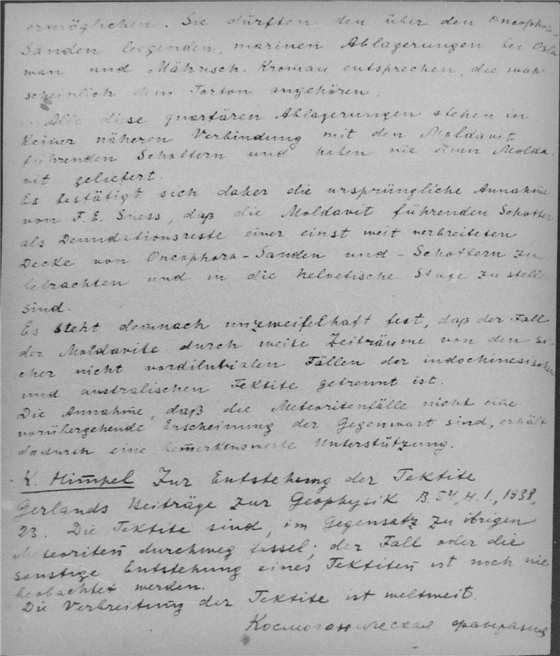 ermöglichen. Sie dürften den über den Oncophora
Sanden liegenden, marinen Ablagerungen bei Osla
wan und Mährisch. Kromau entsprechen, die wah
scheinlich dem Torton angehören.
Alle diese quartären Ablagerungen stehen in
keiner näheren Verbindung mit den Moldavit
führenden Schottern und haben nie einen Molda
vit geliefert.
Es bestätigt sich daher die ursprüngliche Annahme
von F. E. Suess, daß die Moldavit führenden Schotter
als Denudationsreste einer einst weit verbreiteten
Decke von Oncophora-Sanden und -Schottern zu
betrachten und in die helvetische Stufe zu stelle
sind.
Es steht demnach unzweifelhaft fest, daß der Fall
der Moldavite durch weite Zeiträume von den si
cher nicht vordiluvialen Fällen der indochinesischen
und australischen Tektite getrennt ist.
Die Annahme, daß die Meteoritenfälle nicht eine
vorübergehende Erscheinung der Gegenwart sind, erhält
dadurch eine bemerkenswerte Unterstützung.
K. Himpel Zur Entstehung der Tektite
Gerlands Beiträge zur Geophysik B. 54, H. 1., 1938,
23. Die Tektite sind, im Gegensatz zu übrigen
Meteoriten durchweg fossil; der Fall oder die
sonstige Entstehung eines Tektiten ist noch nie
beobachtet werden.
Die Verbreitung der Tektite ist weltweit.
Космогоническая